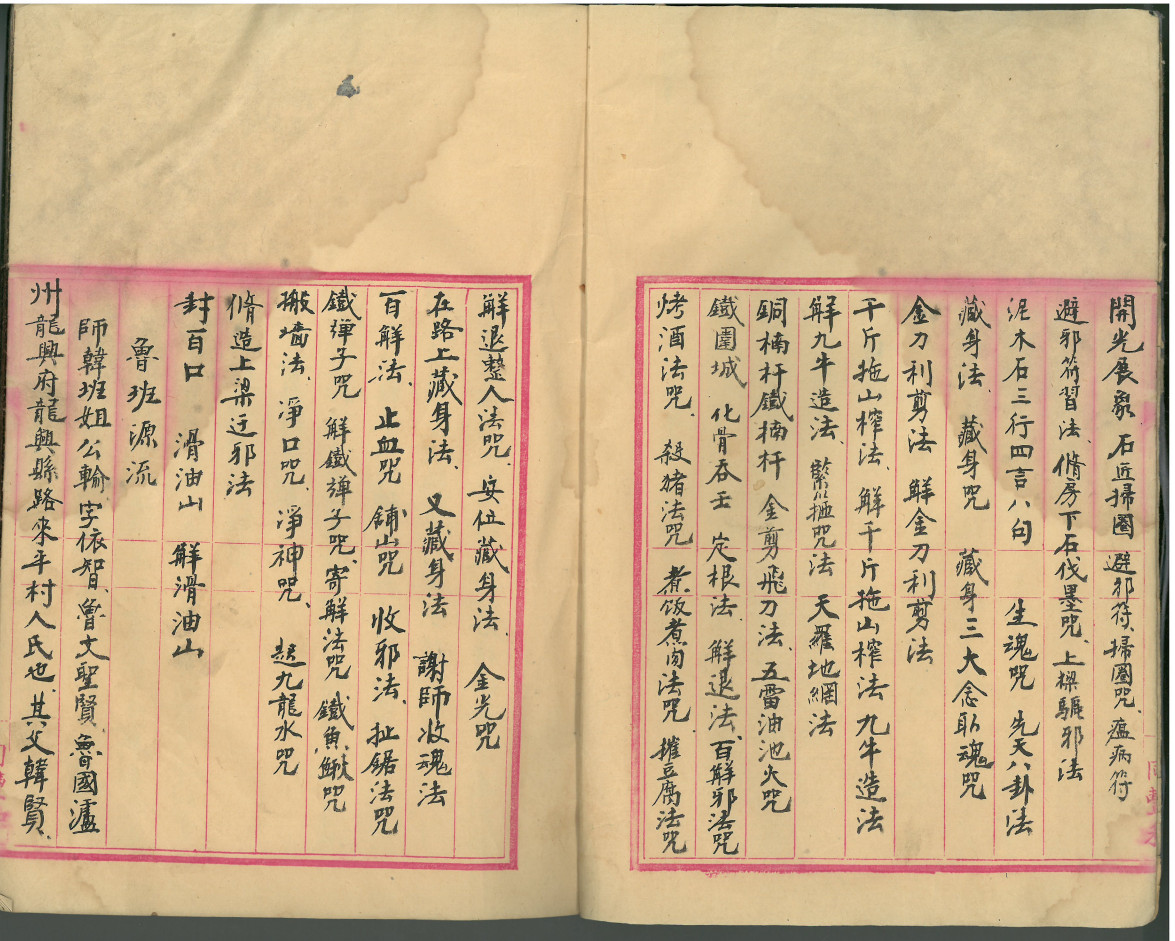 開光展眾 石匠掃圈 避邪符、掃圈咒、瘟病符
避邪符習法、脩房下石伐墨咒、上樑驅邪法
泥木石三行四言八句 生魂咒 先天八卦法
藏身法、藏身咒 藏身三大念 魂咒
金刀利剪法 解金刀利剪法
千斤拖山榨法、解千斤拖山榨法 九牛造法
解九牛造法、緊 咒法 天羅地網法
銅楠杆鐵楠杆 金剪飛刀法、五雷油池火咒
鐵圍城 化骨吞 定根法、解退法、百解邪法咒
烤酒法咒、殺猪法咒、煮饭煮肉法咒、摧豆腐法咒
解退整人法咒、安位藏身法、金光咒
在路上藏身法、又藏身法 謝師收魂法
百解法、止血咒 舖山咒 收邪法、扯鋸法咒
鐵弹子咒 解鐵弹子咒、寄解法咒 鐵魚鰍咒
搬墙法、淨口咒、淨神咒、 九龍水咒
脩造上梁 邪法
封百口 滑油山 解滑油山
魯班源流
師韓班姐公輸、字依智、魯文聖賢、魯國瀘
州龍興府龍興縣路來平村人氏也、其父韓賢、